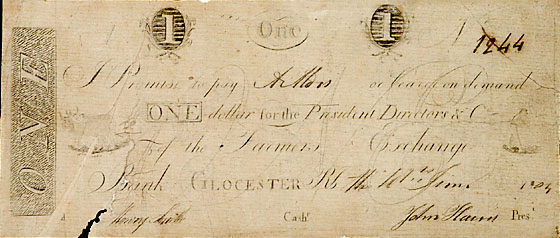 1 One 1
1244
ONE
I Promise to pay
or bearer on demand
ONE dollar for the President Directors & Co
of the Farmers Exchange
Bank GLOCESTER
June
Cashr John Harris Prest